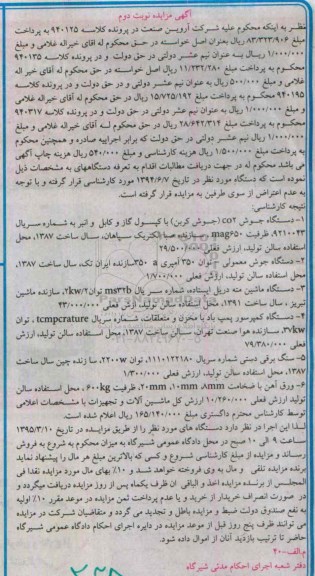 آگهی مزایده نوبت دوم
نظر به اینکه محکوم علیه شرکت آروین صنعت در پرونده کلاسه ۹۴۰۱۲۵ به پرداخت
مبلغ ۸۳/۳۲۳/۹۰۶ ریال بعنوان اصل خواسته در حق محکوم له آقای خیراله غلامی و مبلغ
۱/۰۰۰/۰۰۰ ریال به عنوان نیم عشر دولتی در حق دولت و در پرونده کلاسه ۹۴۰۱۳۵
محکوم به پرداخت مبلغ ۱۱/۲۳۲/۲۸۰ ریال اصل خواسته در حق محکوم له آقای خیر اله
غلامی و مبلغ ۵۰۰/۰۰۰ ریال به عنوان نیم عشر دولتی و در حق دولت و در پرونده کلاسه
۹۴۰۱۹۵ محکوم به پرداخت مبلغ ۱۵/۷۲۵/۱۹۲ ریال در حق محکوم له آقای خیراله غلامی
و مبلغ ۱/۰۰۰/۰۰۰ ریال به عنوان نیم عشر دولتی در حق دولت و در پرونده کلاسه ۹۴۰۳۱۷
محکوم به پرداخت مبلغ ۲۸/۶۴۲/۳۱۴ ریال در حق محکوم له آقای خیراله غلامی و مبلغ
۱/۰۰۰/۰۰۰ ریال نیم عشر دولتی در حق دولت که برابر اجراییه صادره و همچنین محکوم
به پرداخت مبلغ ۱/۵۰۰/۰۰۰ ریال هزینه کارشناسی و مبلغ ۵۴۰/۰۰۰ ریال هزینه چاپ آگهی
می باشد محکوم له در جهت دریافت مطالبات اقدام به تعرفه دستگاههای به مشخصات ذیل
نموده است که دستگاه مورد نظر در تاریخ ۱۳۹۴/۶/۷ مورد کارشناسی قرار گرفته و با توجه
به عدم اعتراض از سوی طرفین به مزایده قرار گرفته است.
نتیجه کارشناسی:
۱- دستگاه جوش co۲ (جوش کربن) با کپسول گاز و کابل و انبر به شماره سریال
۹۲۱۰۰۴۳، ظرفیت mag۶۵۰، سازنده صبا الکتریک سپاهان، سال ساخت ۱۳۸۷، محل
استفاده سالن تولید، ارزش فعلی ۲۹/۵۰۰/۰۰۰
۲- دستگاه جوش معمولی، توان ۳۵۰ آمپری a ۳۵۰ سازنده ایران تک، سال ساخت ۱۳۸۷،
محل استفاده سالن تولید، ارزش فعلی ۱/۷۰۰/۹۰۰
۳- دستگاه ماشین مته دریل ایستاده، شماره سریال ms۳۲b توان ۲kw/۲، سازنده ماشین
تبریز، سال ساخت ۱۳۹۱، محل استفاده سالن تولید، ارزش فعلی ۴۳/۰۰۰/۰۰۰
۴- دستگاه کمپرسور پمپ باد با مخزن و متعلقات، شماره سریال tcmpcrature، توان
۳۷kw، سازنده هوا صنعت تهران، سالن ساخت ۱۳۸۷، محل استفاده سالن تولید، ارزش
فعلی ۷۹/۳۸۰/۰۰۰
۵- سنگ برقی دستی شماره سریال ۱۱۱۰۱۲۲۱۸۰، توان ۲۲۰۰w، سا زنده چین سال ساخت
۱۳۸۷، محل استفاده سالن تولید، ارزش فعلی ۱/۳۰۰/۰۰۰
۶- ورق آهن با ضخامت ۸mm، ۱۰mm، ۲۰mm، ظرفیت ۶۰۰kg، محل استفاده سالن
تولید ارزش فعلی ۱۰/۲۶۰/۰۰۰ ارزش کل ماشین آلات و تجهیزات با مشخصات اعلامی
توسط کارشناس محترم دادگستری مبلغ ۱۶۵/۱۴۰/۰۰۰ ریال اعلام شده است.
لذا این اجرا در نظر دارد دستگاه های مورد نظر را از طریق مزایده در تاریخ ۱۳۹۵/۳/۱۰
ساعت ۹ الی ۱۰ صبح در محل دادگاه عمومی شیرگاه به میزان محکوم به شروع به فروش
رساند و مزایده از مبلغ کارشناسی شروع و کسی که بالاترین مبلغ هر مال را پیشنهاد نماید
برنده مزایده تلقی و مال به وی فروخته خواهد شد و ۱۰٪ بهای مال مورد مزایده نقدا فی
المجلس از برنده مزایده اخذ و الباقی آن ظرف یکماه پس از روز مزایده دریافت میگردد و
در صورت انصراف خریدار از خرید و یا عدم پرداخت ثمن مزایده در موعد مقرر ۱۰٪ اولیه
به نفع صندوق دولت ضبط و مزایده باطل و تجدید می گردد و متقاضیان شرکت در مزایده
می توانند ظرف پنج روز قبل از موعد مزایده در دایره اجرای احکام دادگاه عمومی شیرگاه
حاضر تا ترتیب بازدید آنان از اموال داده شود.
م.الف-۲۰۰
دفتر شعبه اجرای احکام مدنی شیرگاه